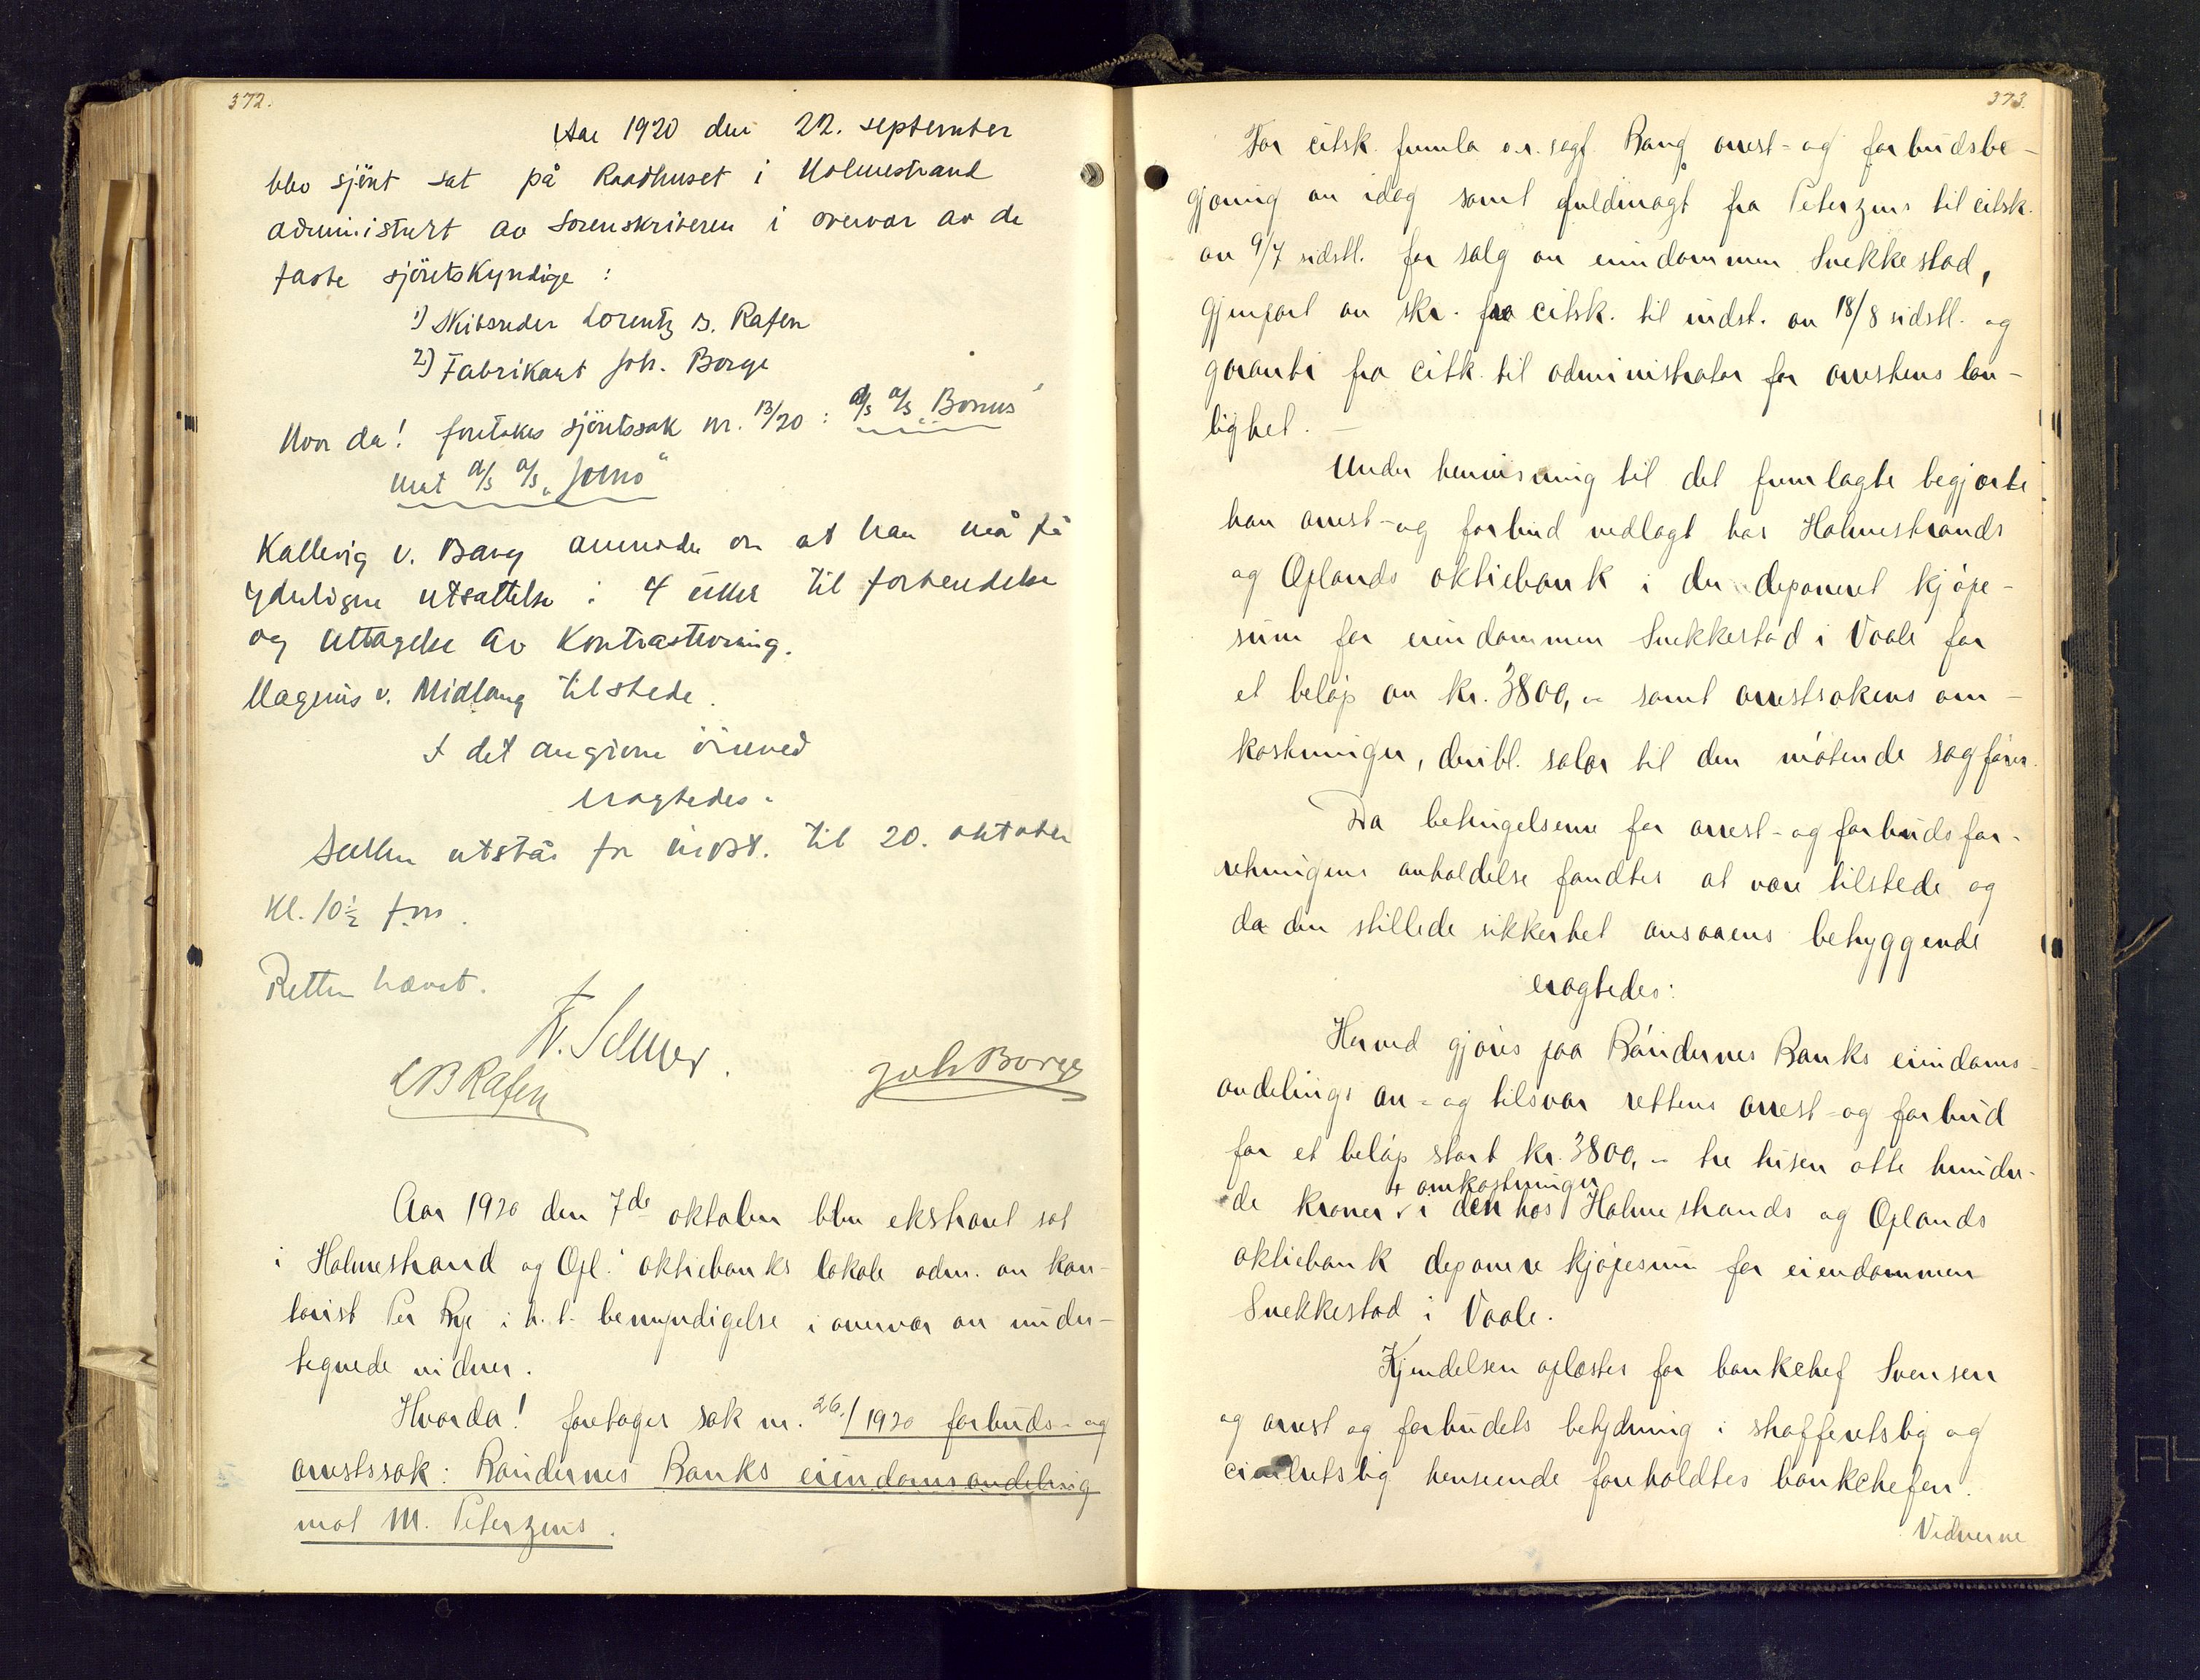 372.
Aar 1920 den 22. september
blev sjöret sat på Raadhuset i Holmestrand
administrert av Sorenskriveren i overvær av de
faste sjöretskyndige:
1) Skibsreder Lorentz B. Rafen
2) Fabrikant Joh. Borge
Hvor da! foretokes sjöretssak nr. 13/20: A/S A/S „Bonus"
mot A/S A/S „Jomo"
Kallevig v. Bang anmodet om at han må få
yderligere utsættelse i 4 uker til forkyndelse
og uttagelse av Kontrastevning.
Magnus v. Midlang tilstede.
I det angivne öiemed
eragtedes:
Sakken utstår fra indst. til 20. oktober
Kl. 10½ fm.
Retten hævet.
N. Selmer.
L B Rafen
Joh Borge
Aar 1920 den 7de oktober blev ekstraret sat
i Holmestrand og Opl. aktiebanks lokale adm. av kon-
torist Per Rye i h. t. bemyndigelse i overvær av under-
tegnede vidner.
Hvorda! foretoges sak nr. 26/1920 forbuds- og
arrestssak: Bøndernes Banks eiendomsavdeling
mot M. Peterzens.
373.
For citsk. fremla o.r. sagf. Bang arrest- og forbudsbe-
gjæring av idag samt fuldmagt fra Peterzens til citsk.
av 9/7 sidstl. for salg av eiendommen Snekkestad,
gjenpart av skr. fra citsk. til indst. av 18/8 sidstl. og
garanti fra citk. til administrator for arrestens lov-
lighet. —
Under henvisning til det fremlagte begjærte
han arrest- og forbud nedlagt hos Holmestrands
og Oplands aktiebank i den deponeret kjøpe-
sum for eiendommen Snekkestad i Vaale for
et beløp av kr. 3800,– samt arrestsakens om-
kostninger, deribl. salær til den møtende sagfører.
Da betingelserne for arrest- og forbudsfor-
retningens avholdelse fandtes at være tilstede og
da den stillede sikkerhet ansaaes betryggende
eragtedes:
Herved gjøres paa Bøndernes Banks eiendoms-
avdelings an- og tilsvar rettens arrest- og forbud
for et beløp stort kr. 3800,– tre tusen otte hundre-
+ omkostninger
de kroner i den hos Holmestrands og Oplands
aktiebank deponere kjøpesum for eiendommen
Snekkestad i Vaale.
Kjendelsen oplæstes for bankchef Svensen
og arrest og forbudets betydning i strafferetslig og
civilretslig henseende foreholdtes bankchefen.
Vidnerne